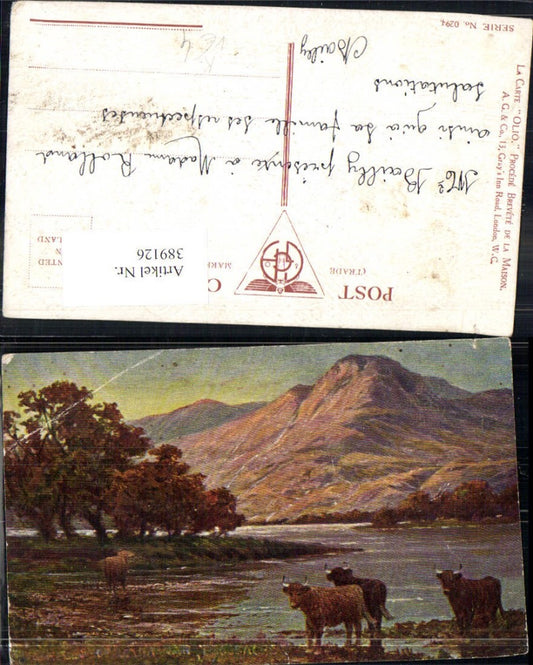 SERIE No. 0294
LA CARTE "OLIO," PROCÉDÉ BREVÉTÉ DE LA MAISON.
A. G. & Co., 13, Gray's Inn Road, London, W.C.
POST C
(TRADE
MARK
NTED
N
LAND
Artikel Nr.
389126
Bailly présente à Madame Rolland
ainsi qu'à sa famille ses respectueuses
salutations
Bailly